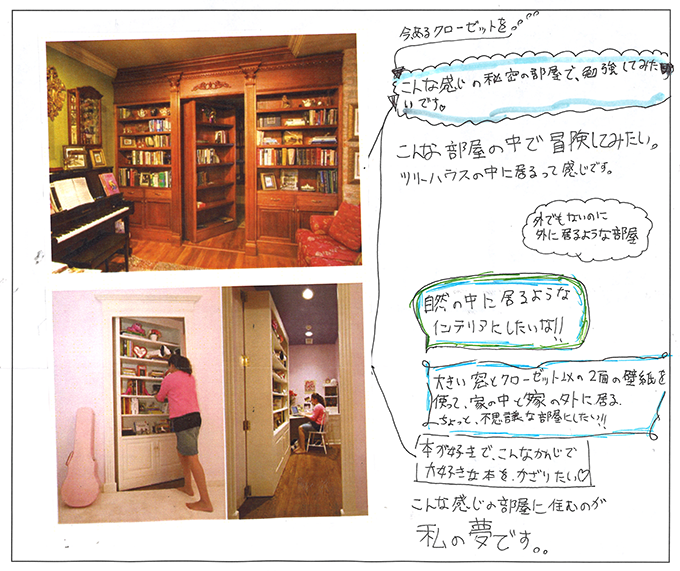 今あるクローゼットを。。。
こんな感じの秘密の部屋で、勉強してみた
いです。
こんな部屋の中で冒険してみたい。
ツリーハウスの中に居るって感じです。
外でもないのに
外に居るような部屋
自然の中に居るような
インテリアにしたいな!!
大きい窓とクローゼット以外の2面の壁紙を
使って、家の中と家の外に居る
ちょっと、不思議な部屋にしたい!!
本が好きで、こんなかんじで
大好きな本を、かざりたい♡
こんな感じの部屋に住むのが
私の夢です。。